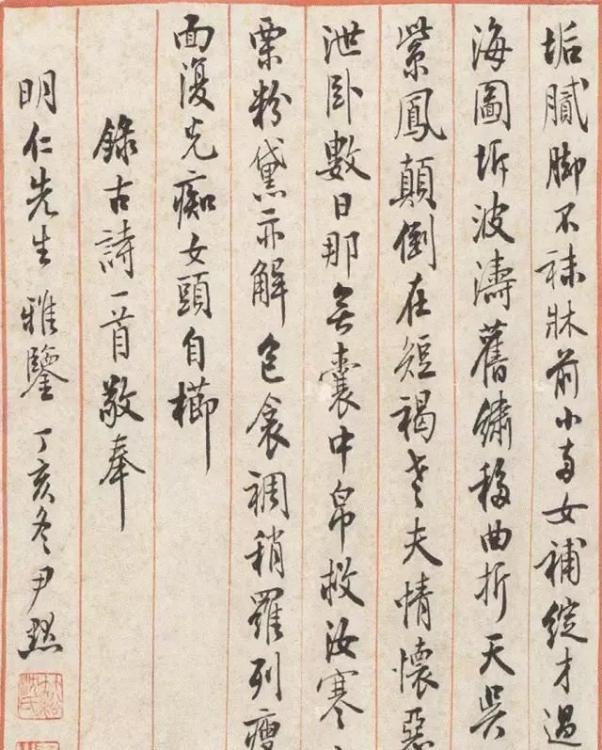 垢膩脚不袜牀前小两女補綻才過
海圖坼波濤舊繡移曲折天吳
紫鳳顛倒在短褐老夫情懷惡
泄卧數日那無囊中帛救汝寒
栗粉黛亦解包衾裯稍羅列瘦
面復光痴女頭自櫛
錄古詩一首敬奉
明仁先生雅鑒丁亥冬尹默